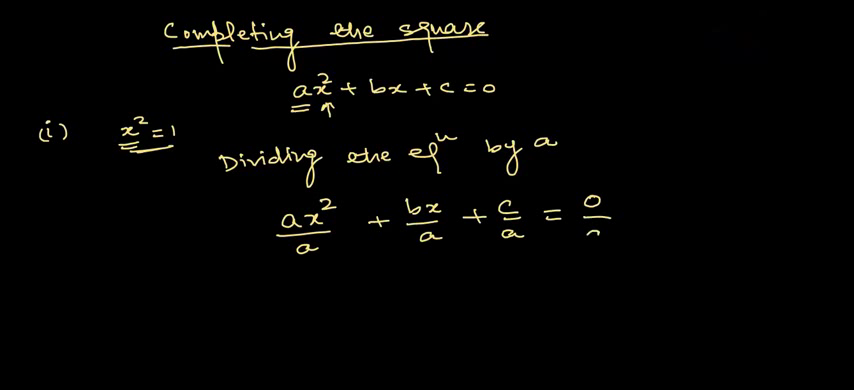 Completing the square
ax² + bx + c = 0
(i) x² = 1
Dividing the eqⁿ by a
ax²/a + bx/a + c/a = 0/